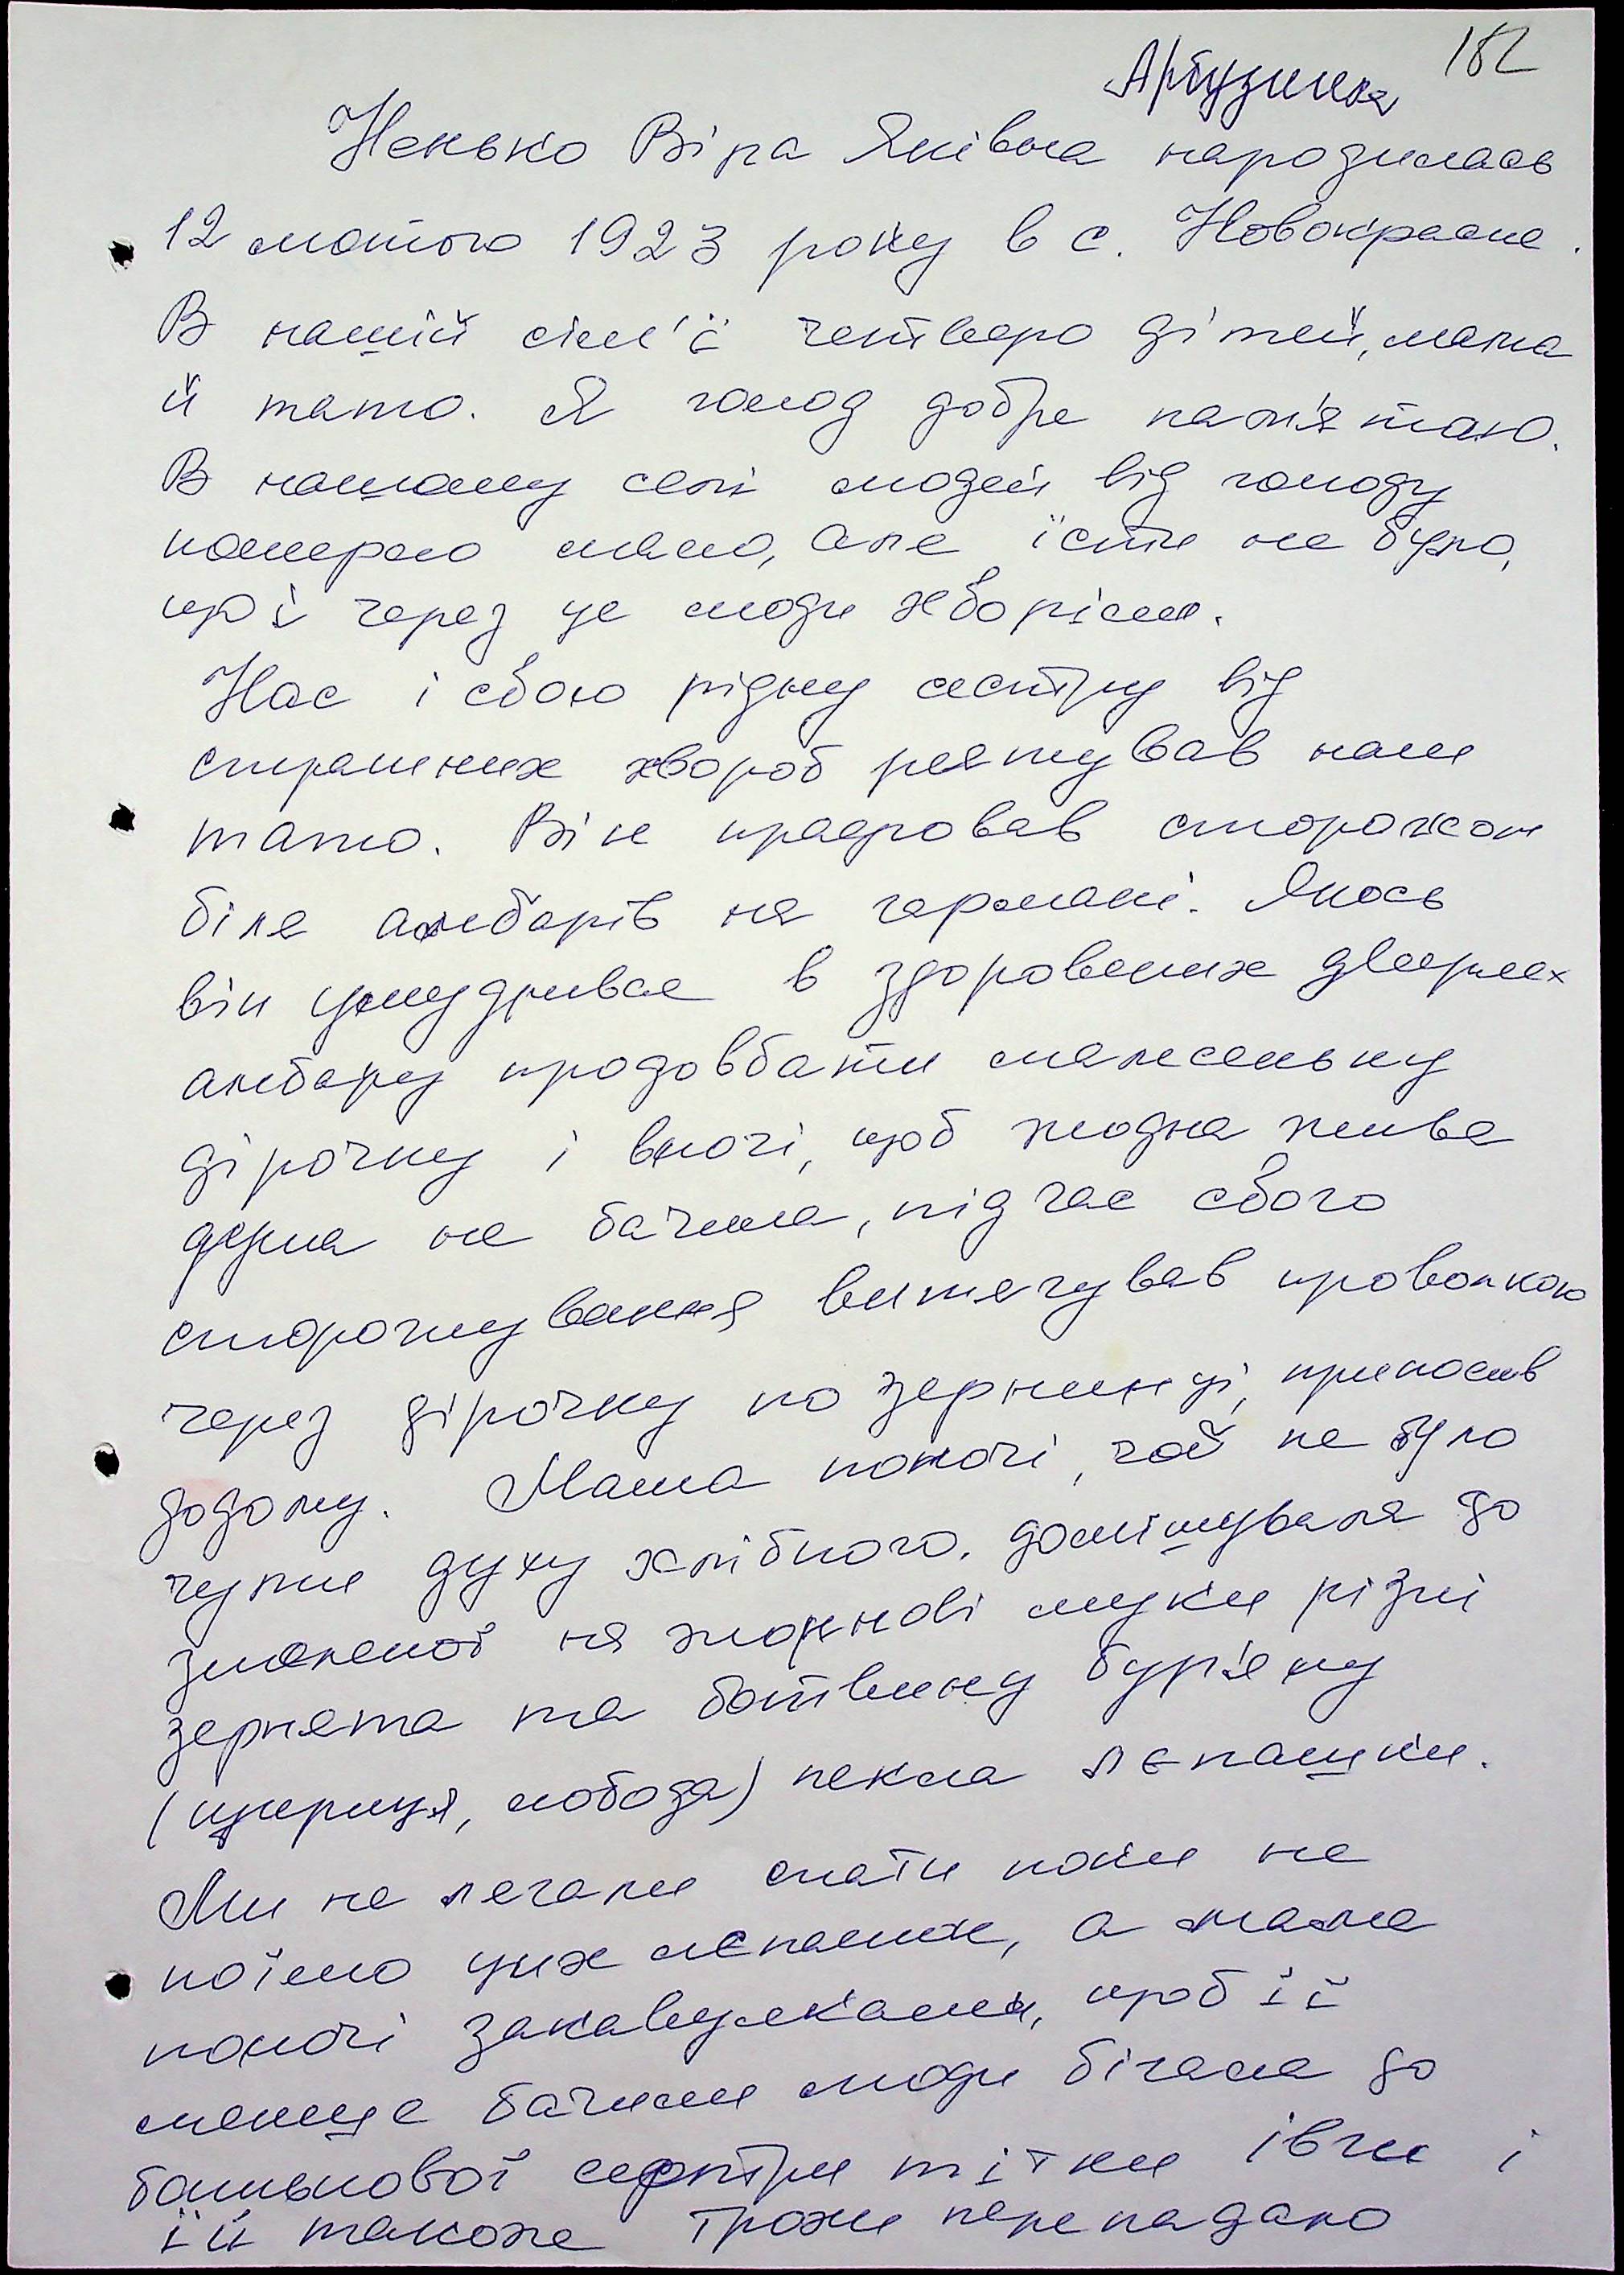 Арбузинка 182
Ненько Віра Яківна народилась
12 лютого 1923 року в с. Новокрасне.
В нашій сім'ї четверо дітей, мама
й тато. Я голод добре пам'ятаю.
В нашому селі людей від голоду
померло мало, але їсти не було,
що і через це люди хворіли.
Нас і свою рідну сестру від
страшних хвороб рятував наш
тато. Він працював сторожом
біля амбарів на гармані. Якось
він умудрився в здоровених дверях
амбару продовбати малесеньку
дірочку і вночі, щоб жодна жива
душа не бачила, під час свого
сторожування витягував проволкою
через дірочку по зернинці, приносив
додому. Мама поночі, чоб не було
чутни духу хлібного, домішувала до
змеленої на жорнові муки різні
зернята та ботвину бур'яну
(щириця, лобода) пекла лєпашки.
Ми не лягали спати поки не
поїмо цих лєпашик, а мама
поночі закавулками, щоб її
менше бачили люди бігала до
батькової сестри тітки Івги і
їй також трохи перепадало